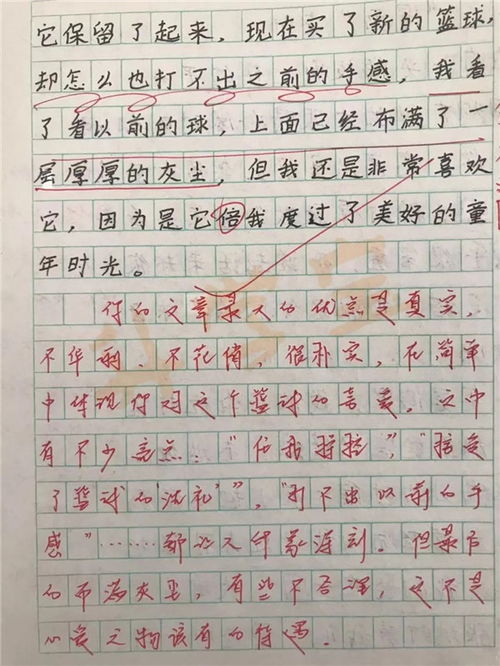 它保留了起来，现在买了新的篮球，
却怎么也打不出之前的手感，我看
了看以前的球，上面已经布满了一
层厚厚的灰尘，但我还是非常喜欢
它，因为是它倍我度过了美好的童
年时光。
你的文章最大的优点是真实，
不华丽、不花俏，很朴实，在简单
中体现你对这个篮球的喜爱。文中
有不少亮点："伤我
了篮球的洗礼"，"打不出以前的手
感"……都让人印象深刻。但最后
的布满灰尘，有些不合理，这不是
心爱之物该有的待遇。